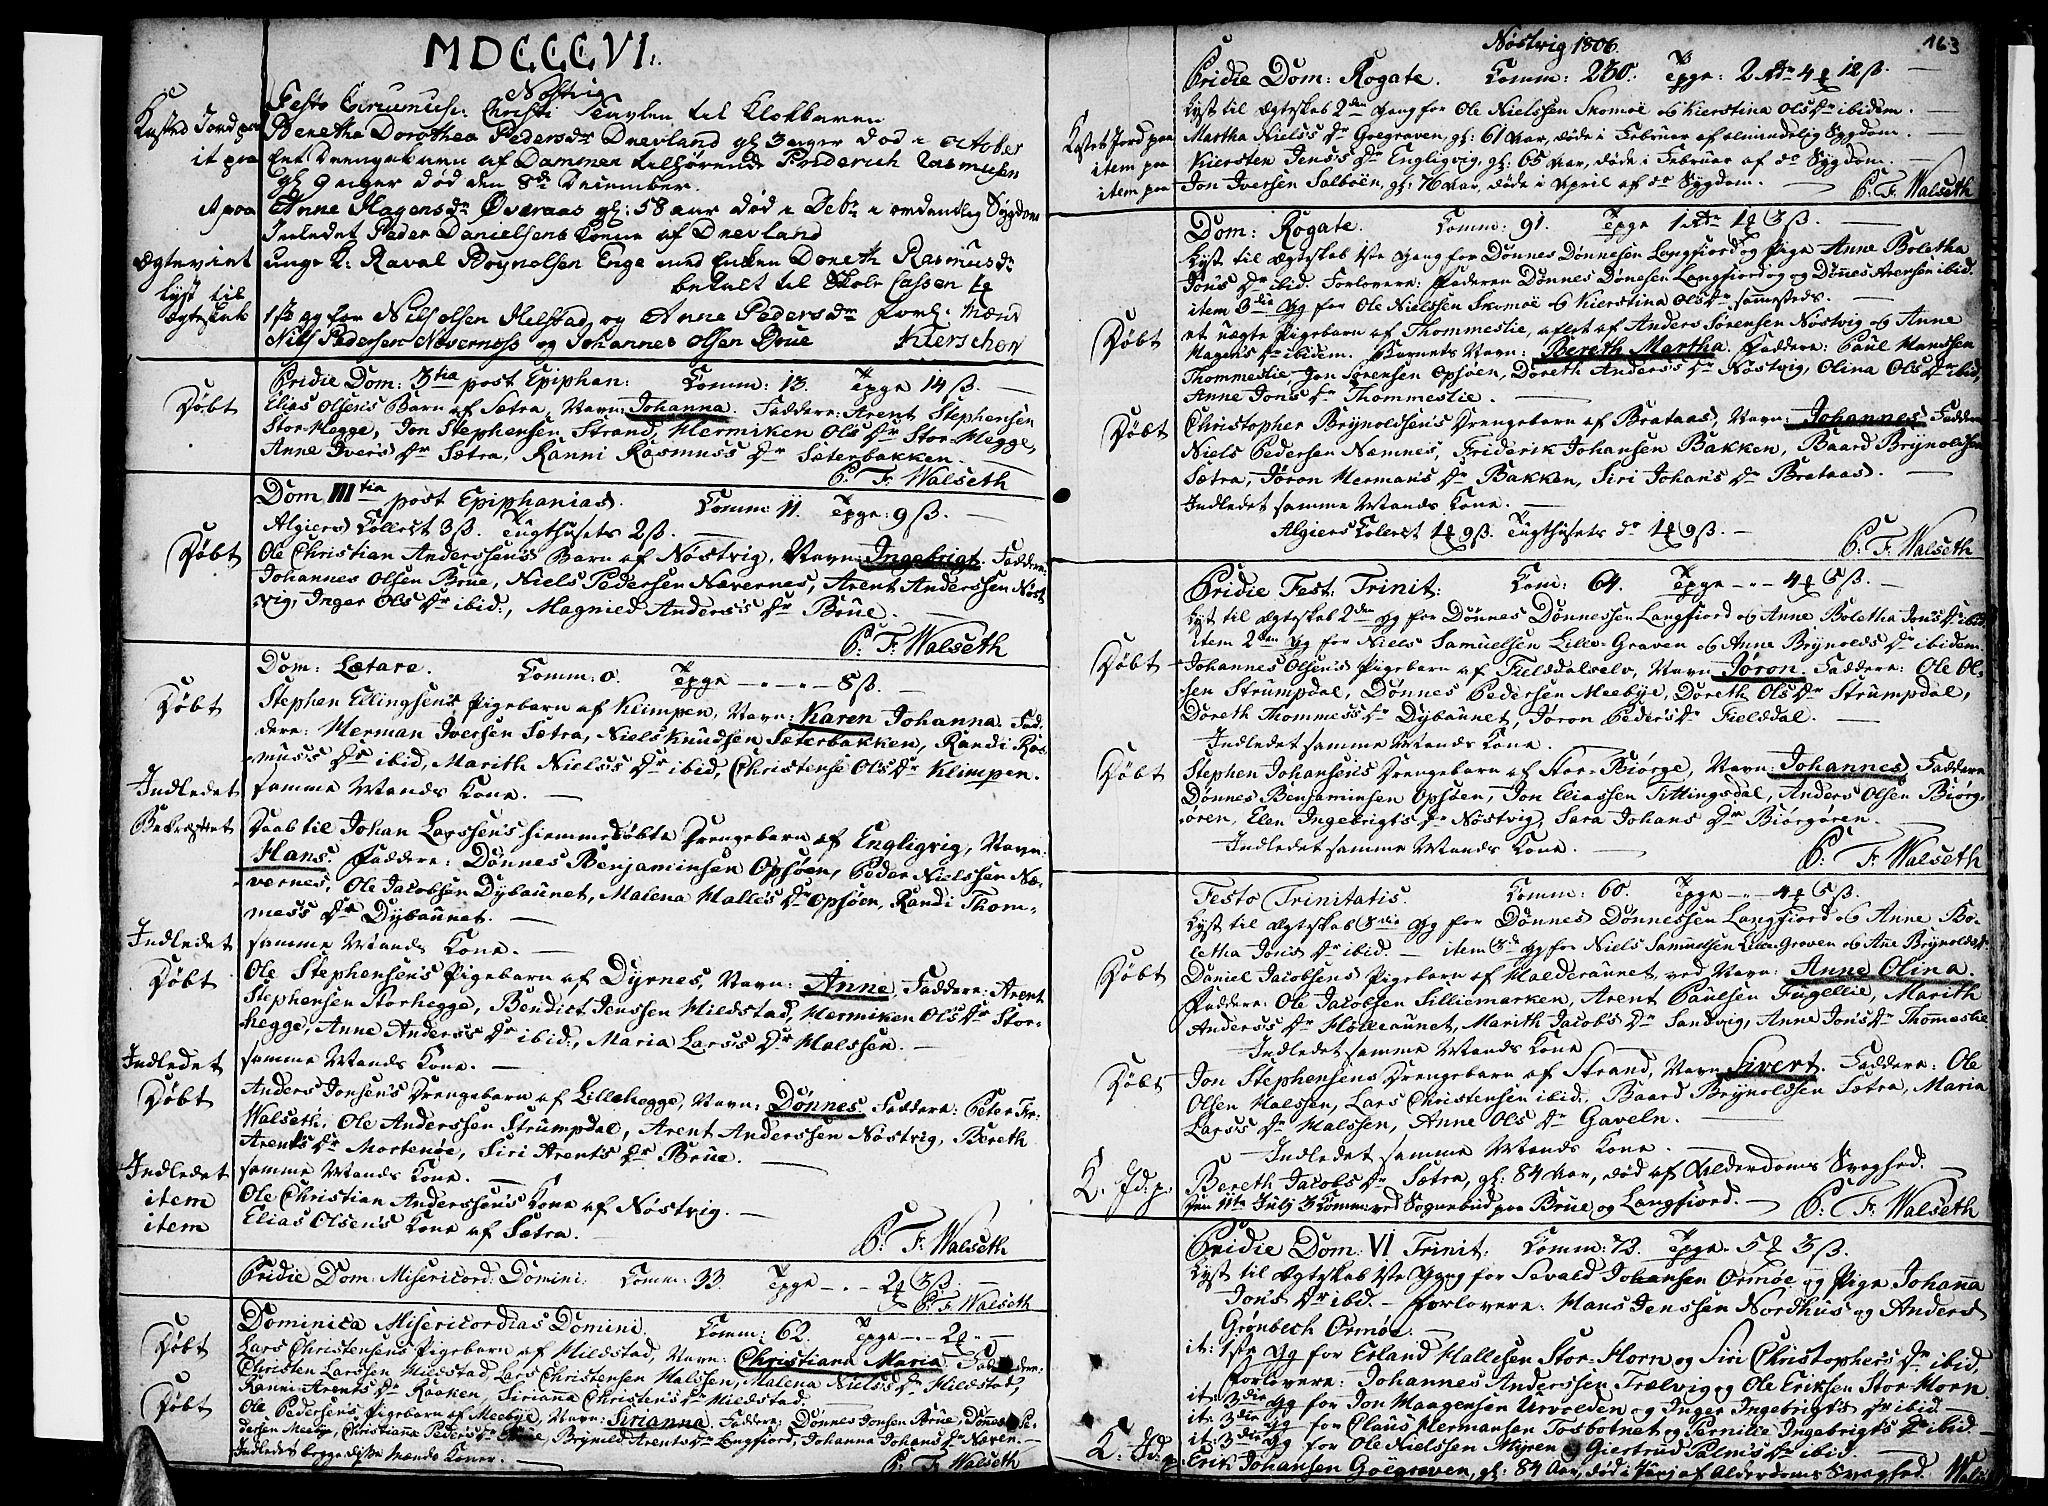 MDCCCVI.
Nøstvig
Festo Circumcis: Christi Penylen til Klokkeren
Kasted Jord paa Beretha Dorothea Pedersdr Drevland gl 3 uger død i October
it paa Eet Drengebarn af Dammen tilhørende Forderich Rasmusen
gl 9 uger død den 8de December.
it paa Anne Hagensdr Øveraas gl: 58 aar død i Febr i ordentlig Sygdom
Indledet Peder Danielsens Kone af Drevland
Ægteviet unge K: Raval Brynelsen Enge med Enken Doreth Rasmusdr
betalt til Skole Cassen
Lyst til Ægteskab 1ste gg for Nils Olsen Helstad og Anne Pedersdr Forl: Mænd
Nils Pedersen Nøvernøss og Johannes Olsen Brue Kierschow
Pridie Dom: 3tia post Epiphan: Komm: 13. Tpge 14 ß.
Døbt Elias Olsen's Barn af Sætra, Navn: Johanna. Faddere: Arent Stephensen
Stor-Hegge, Jon Stephensen Strand, Hermiken Ols Dr Stor-Hegge,
Anne Iver's Dr Sætra, Ranni Rasmus's Dr Sæterbakken.
P: F: Walseth
Dom IIItia post Epiphanias. Komm: 11. Tpge: 9 ß.
Algiers Collect 3ß. Tugthusets 2ß.
Døbt Ole Christian Anderssen's Barn af Nøstvig, Navn: Ingebrigt. Faddere:
Johannes Olsen Brue, Niels Pedersen Nævernes, Arent Anderssen Nøst
vig, Inger Ols Dr ibid:, Magnild Anders's Dr Brue.
P: F: Walseth
Dom: Lætare. Komm: 0. Tpge - - - 8 ß.
Døbt Stephen Ellingsen's Pigebarn af Klimpen, Navn: Karen Johanna. Fad-
dere: Herman Iversen Sætra, Niels Knudsen Sæterbakken, Randi Ras-
mus's Dr ibid, Marith Niels's Dr ibid, Christense Ols Dr Klimpen.
Indledet samme Mands Kone.
Bekræftet Daab til Johan Larssen's hiemmedøbte Drengebarn af Engligvig, Navn:
Hans. Faddere: Dønnes Benjaminsen Opsøen, Peder Nielssen Næ-
vernes, Ole Jacobsen Dybaunet, Malena Halles Dr Opsøen, Randi Thom-
mess Dr Dybaunet.
Indledet samme Mands Kone.
Døbt Ole Stephensen's Pigebarn af Dyrnes, Navn: Anne. Faddere: Arent
Stephensen Storhegge, Bendict Jenssen Hildstad, Hermiken Ols Dr Stor-
hegge, Anne Anders's Dr ibid:, Maria Lars's Dr Halssen.
Indledet samme Mands Kone.
Døbt Anders Jonsen's Drengebarn af Lillehegge, Navn: Dønnes. Faddere: Peter Fr:
Walseth, Ole Anderssen Strumpdal, Arent Anderssen Nøstvig, Bereth
Arent's Dr Mortenøe, Siri Arent's Dr Brue.
Indledet samme Mands Kone.
item Ole Christian Anderssen's Kone af Nøstvig.
item Elias Olsen's Kone af Sætra.
P: F: Walseth
Pridie Dom: Misericord: Domini: Komm: 33. Tpge - - 2 3ß.
P: F: Walseth
Dominica Misericordias Domini. Komm: 62. Tpge - - 2
Døbt Lars Christensens Pigebarn af Hildstad, Navn: Christiana Maria. Faddere:
Christen Larssen Hildstad, Lars Christensen Halssen, Malena Niels's Dr Hildstad,
Ranni Arents Dr Raaken, Siriana Christen's Dr Hildstad.
Døbt Ole Pedersens Pigebarn af Meebye, Navn: Sirianna. Faddere: Dønnes Jonsen Brue, Dønnes Pe-
dersen Meebye, Christiana Peders Dr Brue, Brynild Arents Dr Langfiord, Johanna Johans Dr Næven.
Indledet begge disse Mænds Koner.
P: F: Walseth
Nøstvig 1806.
163
Pridie Dom: Rogate. Komm: 230. Tpge: 2 Rdr 4 12 ß.
Lyst til Ægteskab 2den Gang for Ole Nielssen Skomoe og Kierstina Ols Dr ibidem.
Kastet Jord paa Martha Niels's Dr Goegraven, gl: 61 Aar, døde i Februar af almindelig Sygdom.
item paa Kiersten Jens's Dr Engligvig, gl: 65 Aar, døde i Februar af do Sygdom.
item paa Jon Iversen Salbøen, gl: 76 Aar, døde i April af do Sygdom.
P: F: Walseth
Dom: Rogate. Komm: 91. Tpge 1 Rdr 1 3ß.
Lyst til Ægteskab 1ste Gang for Dønnes Dønnesen Langfiord og Pige Anne Boletha
Jons Dr ibid. Forlovere: Faderen Dønnes Dønesen Langfiord og Dønnes Arensen ibid.
item 3die Gg for Ole Nielssen Skomoe og Kierstina Ols Dr sammesteds.
Døbt et uægte Pigebarn af Thommeslie, avlet af Anders Sørensen Nøstvig og Anne
Hagen's Dr ibidem. Barnets Navn: Bereth Martha. Faddere: Paul Hanssen
Thommeslie Jon Sørensen Opsøen, Doreth Anders's Dr Nøstvig, Olina Ols Dr ibid,
Anne Jons Dr Thommeslie.
Døbt Christopher Brynoldsen's Drengebarn af Brataas, Navn: Johannes. Faddere:
Niels Pedersen Næmnes, Friderik Johansen Bakken, Baard Brynoldsen
Sætra, Jøron Herman's Dr Bakken, Siri Johan's Dr Brataas.
Indledet samme Mands Kone.
Algiers Collect 1 9ß. Tugthusets do 1 9ß.
P: F: Walseth
Pridie Fest: Trinit: Kom: 64. Tpge - - 4 5 ß.
Lyst til Ægteskab 2den Gg for Dønnes Dønnessen Langfiord og Anne Boletha Jon's Dr ibid
item 2den Gg for Niels Samuelsen Lille-Graven og Anne Brynolds Dr ibidem.
Døbt Johannes Olsen's Pigebarn af Fieldalselv, Navn: Jøron. Faddere: Ole Ol-
sen Strumpdal, Dønnes Pedersen Meebye, Doreth Ols Dr Strumpdal,
Doreth Thommess Dr Dybaunet, Jøron Peders Dr Fielsdal.
Indledet samme Mands Kone.
Døbt Stephen Johansen's Drengebarn af Stor-Biørge, Navn: Johannes. Faddere
Dønnes Benjaminsen Opsøen, Jon Eliassen Fittingsdal, Anders Olsen Biørg-
øren, Elen Ingebrigt's Dr Nøstvig, Sara Johans Dr Biørgøren.
Indledet samme Mands Kone.
P: F: Walseth
Festo Trinitatis. Komm: 60. Tpge - - 4 5 ß.
Lyst til Ægteskab 3die Gg for Dønnes Dønnessen Langfiord og Anne Bo-
letha Jons Dr ibid. - item 3die Gg for Niels Samuelsen Lille-Graven og Ane Brynolds Dr
Døbt Daniel Jacobsens Pigebarn af Halderaunet ved Navn: Anne Olina.
Faddere: Ole Jacobsen Silliemarken, Arent Paulsen Fugellie, Marith
Anders's Dr Holleaunet, Marith Jacob's Dr Sandvig, Anne Jon's Dr Thomeslie
Indledet samme Mands Kone
Døbt Jon Stephensens Drengebarn af Strand, Navn: Sivert. Faddere: Ole
Olsen Halssen, Lars Christensen ibid:, Baard Brynoldsen Sætra, Maria
Lars's Dr Halssen, Anne Ols Dr Gaveln.
Indledet samme Mands Kone.
K. Jd: p. Bereth Jacobs Dr Sætra, gl: 84 Aar, død af Alderdoms Svaghed.
Den 11te July 3 Komm: ved Sognebud paa Brue og Langfiord.
P: F: Walseth
Pridie Dom: VI Trinit: Komm: 72. Tpge. 5 3ß.
Lyst til Ægteskab 1ste Gang for Sevald Johansen Ormøe og Pige Johanna
Jon's Dr ibid. - Forlovere: Hans Jenssen Nordhus og Anders
Grønbech Ormøe.
it: 1ste Gg for Erland Hallesen Stor-Horn og Siri Christopher's Dr ibid.
Forlovere: Johannes Anderssen Trælvig og Ole Eriksen Stor-Horn.
it: 3die Gg for Jon Haagensen Urvolden og Inger Ingebrigts Dr ibid
it: 3die Gg for Claus Hermansen Tosbotnet og Pernilie Ingebrigts Dr ibid
it: 3die Gg for Ole Nielssen Myren og Giertrud Palm's Dr ibid.
K: Jd: p: Erik Johansen Goegraven, gl: 84 Aar, død i Junj af Alderdoms Svaghed. Wals